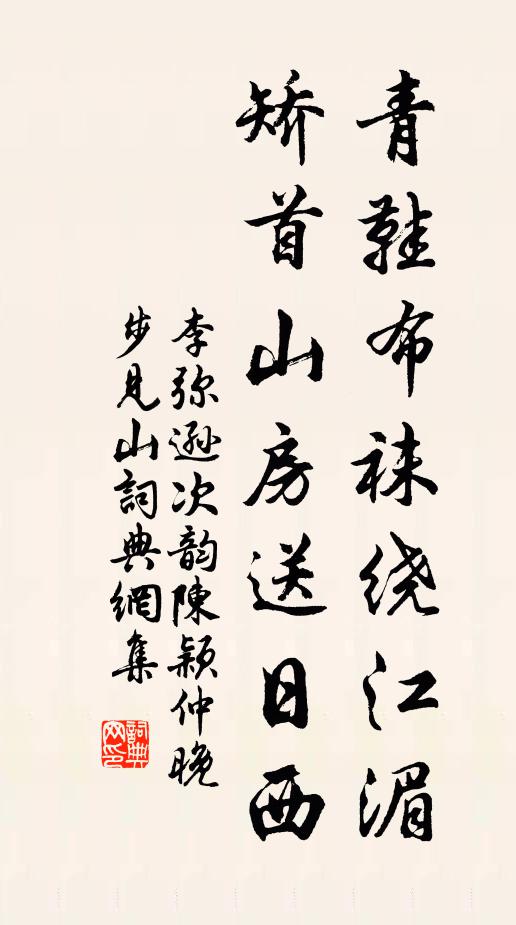 青鞋布袜绕江湄
矫首山房送日西
李弥逊次韵陳颖仲晚
步见山詞典網集
詞典
网印